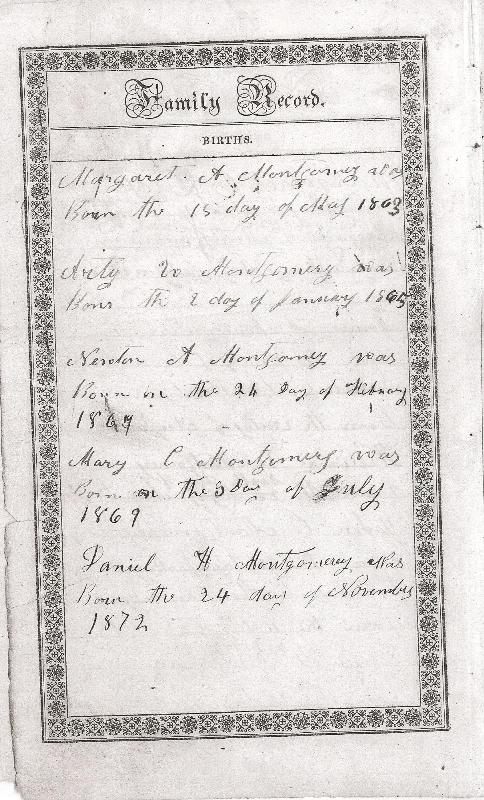 Family Record.
BIRTHS.
Margaret. A Montgomery was
Born the 15 day of May 1863
Arty W Montgomery was
Born the 2 day of January 1865
Newton A Montgomery was
Born on the 24 Day of Febuary
1867
Mary C Montgomery was
Born on the 3 Day of July
1869
Daniel H Montgomerey Was
Born the 24 day of November
1872